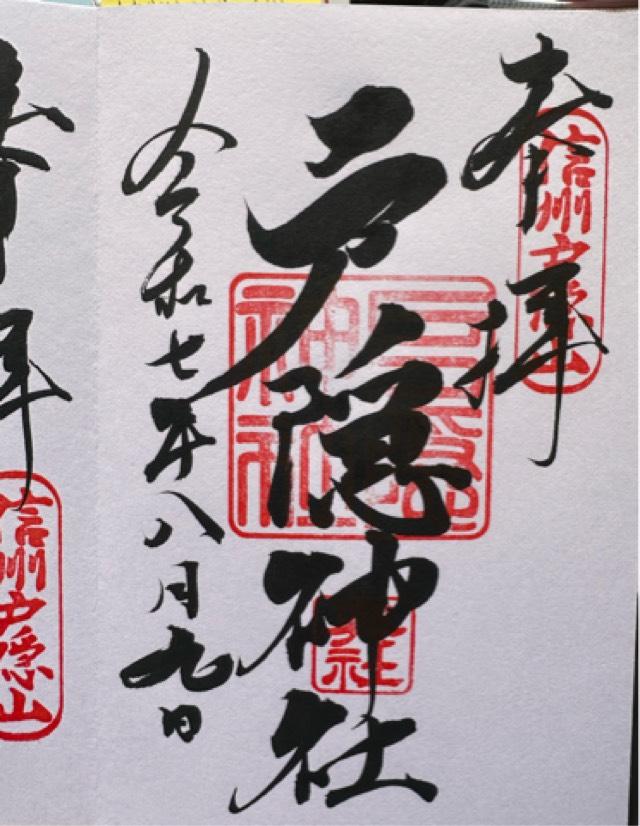 奉拝
信州戸隠山
戸隠神社
戸隠神社
令和七年八月九日
拝
信州戸隠山